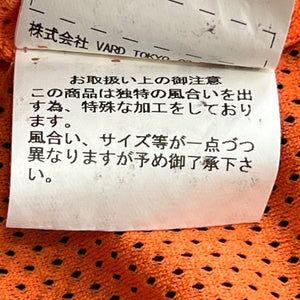 株式会社 VARD TOKYO
お取扱い上の御注意
この商品は独特の風合いを出
す為、特殊な加工をしており
ます。
風合い、サイズ等が一点づつ
異なりますが予め御了承下さ
い。